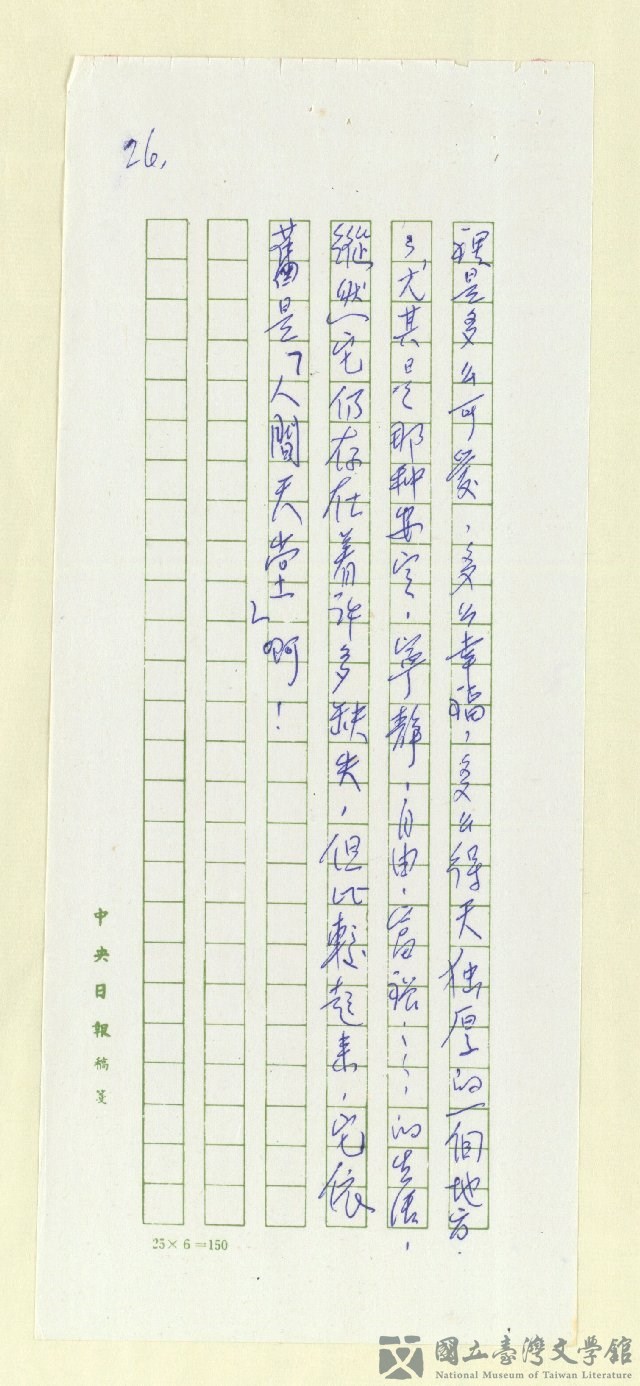 26.
裡是多么可愛，多么幸福，多么得天独厚的一個地方，
尤其是那种安定，寧靜，自由，富裕……的生活，
縱然它仍存在着许多缺失，但比較起来，它依
舊是「人間天堂」啊！
中央日報稿箋
25×6=150
國立臺灣文學館
National Museum of Taiwan Literature